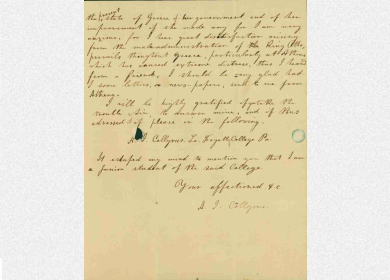 present
the state of Greece & her government and of her
improvement if she made any, as I am very
anxious, for I hear great dissatisfaction arising
from the maladministration of the King Otho,
prevails throughout Greece, particularly at Athens
which has caused extreme distress, thus I heard
from a friend, I should be very glad had
I some letters, or news-papers, sent to me from
Athens.
I will be highly gratified if you take the
trouble Sir, to answer mine, and if thus
adressed if please in the following.
A. I. Collyrus. La Fayette College Pa
It escaped my mind to mention you that I am
a junior student of the said College.
Your affectioned &c.
A. I. Collyrus